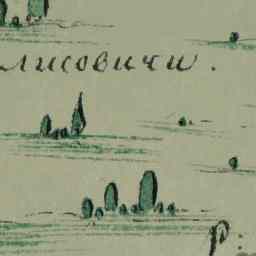 лисовичи.
р: